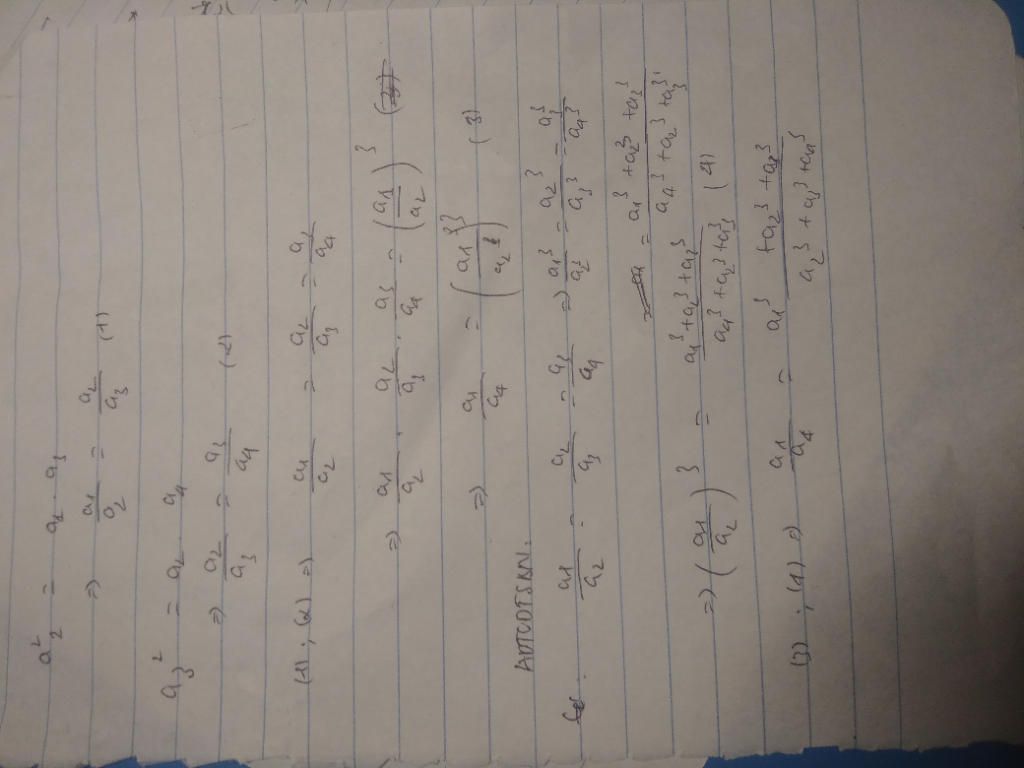 a₂² = a₁ . a₃
=> a₁/a₂ = a₂/a₃ (1)
a₃² = a₂ . a₄
=> a₂/a₃ = a₃/a₄ (2)
(1), (2) => a₁/a₂ = a₂/a₃ = a₃/a₄
=> a₁/a₂ . a₂/a₃ . a₃/a₄ = (a₁/a₂)³
=> a₁/a₄ = (a₁/a₂)³ (3)
ADTCDTSBN.
a₁/a₂ = a₂/a₃ = a₃/a₄ => a₁³/a₂³ = a₂³/a₃³ = a₃³/a₄³
= a₁³ + a₂³ + a₃³ / a₄³ + a₂³ + a₃³
=> (a₁/a₂)³ = a₁³ + a₂³ + a₃³ / a₄³ + a₂³ + a₃³ (4)
(3), (4) => a₁/a₄ = a₁³ + a₂³ + a₃³ / a₂³ + a₃³ + a₄³